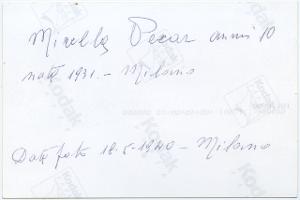 Mirella Pecar anni 10
nata 1931. - Milano
Data foto 18-5-1940 - Milano
Kodak
Kodak
Kodak
Kodak